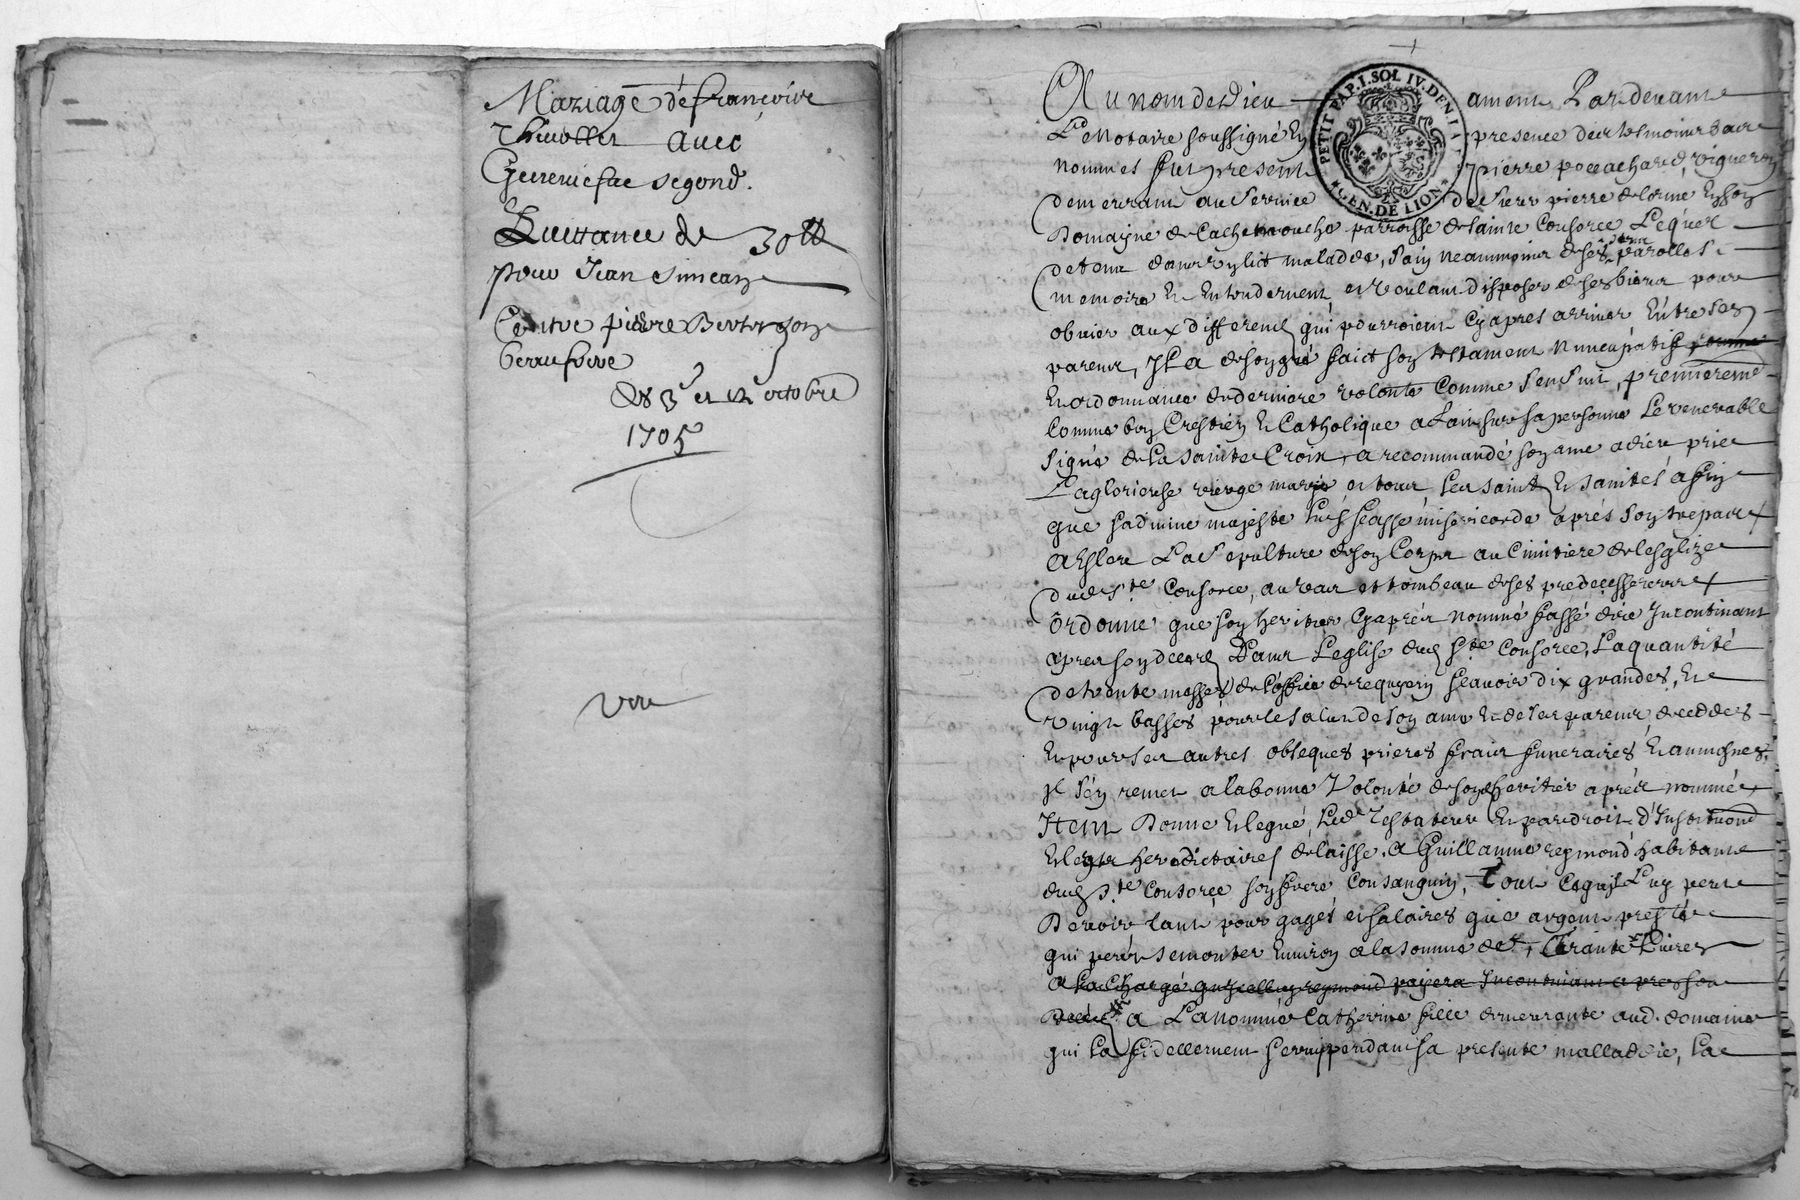 Mariage de françoise
Thivollet avec
Geneviefve segond.
Quittance de 30 ₶
pour Jean Simean
Contre pierre Berterezon
beaufrere
des 3e et 12 octobre
1705
veu
Au nom de dieu amen Par devant
Le Notaire soussigné En presence des tesmoins bas
nommes fut present pierre vigneron
demeurant au service de Sieur pierre delorme En son
Domayne de parroisse de sainte Consorce Lequel
detenu dans un lict malade, sain neanmoins de ses sens parolles
memoire Et Entendement et voulant disposer de ses biens pour
obvier aux differends qui pourroient Cyapres arriver Entre ses
parens, Il a de son gré faict son testament Nuncupatif
Et ordonnance de derniere volonté Comme s'ensuit, premierement
Comme bon Crestien Et Catholique a faict sur sa personne Le venerable
signe de la sainte Croix, a recommandé son ame a dieu prie
La glorieuse vierge marie et tous les saints Et saintes afin
que sa divine majesté luy fasse misericorde apres son trepas
a Eslere La Sepulture de son Corps au Cimitiere de lesglize
dud Ste Consorce, au vas et tombeau de ses predecesseurs
Ordonne que son heritier Cyapres nommé fasse dire Incontinant
apres son deceds Dans Leglise dud Ste Consorce, La quantité
de trente messes de Loffice de requyem scavoir dix grandes, Et
vingt basses pour le salut de son ame Et de ses parens decedes
Et pour ses autres obseques prieres frais funeraires Et aumosnes,
Il s'en remet a la bonne Volonté de sond heritier apres nommé
Item Donne Et legue, Led Testateur Et par droit d'Institution
Et legs hereditaires delaisse a Guillaume reymond habitant
dud Ste Consorce son frere Consanguin, Tout Ce quil Luy peut
Devoir tant pour gages et salaires que argent presté
qui peut se monter Environ a la somme de trante Livres
a la Charge quicelluy reymond payera Incontinant apres son
Deceds a La nommée Catherine fille demeurante aud. domaine
qui La fidellement servi pendant sa presente malladie, La
PETIT PAP. I. SOL IV. DEN. LA
GEN. DE LION